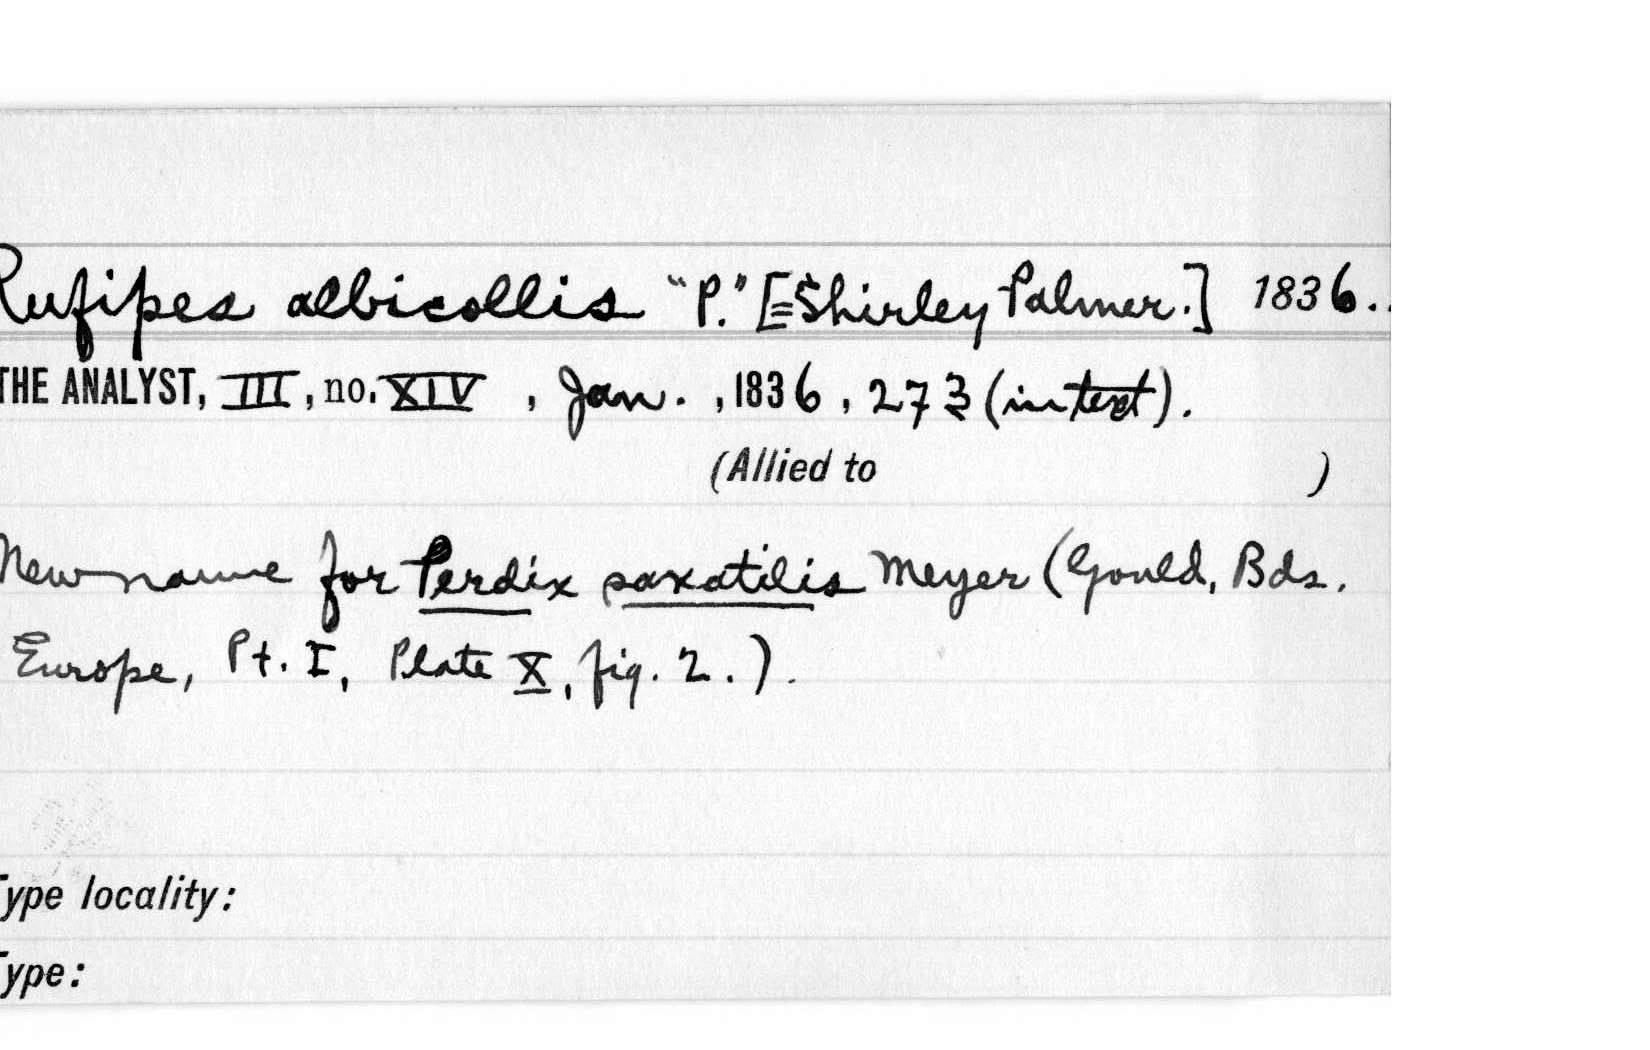 Rufipes albicollis "P." [=Shirley Palmer.] 1836..
THE ANALYST, III, no. XIV, Jan., 1836, 273 (in text).
(Allied to )
New name for Perdix saxatilis Meyer (Gould, Bds.
Europe, Pt. I, Plate X, fig. 2.).
Type locality:
Type: